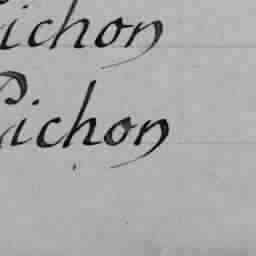 Pichon
Pichon